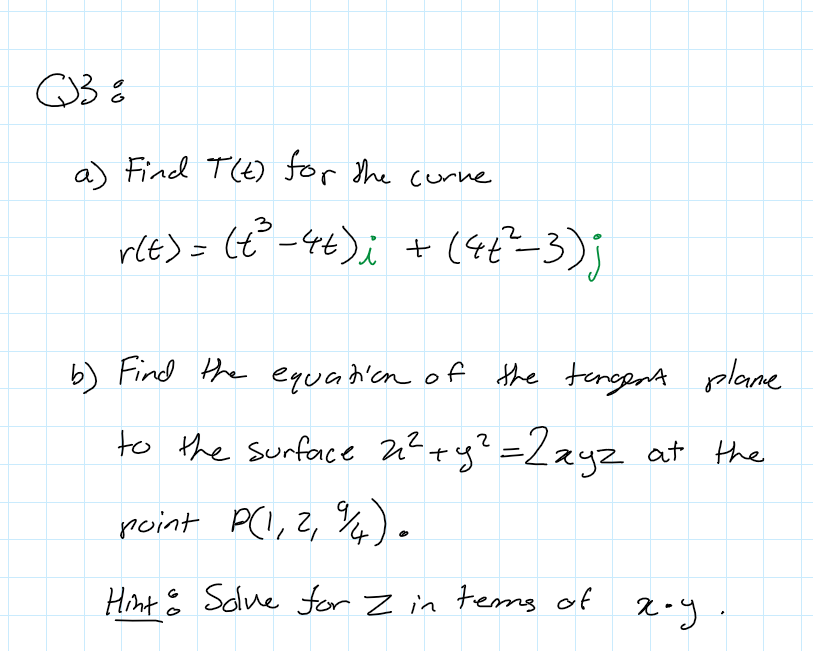 Q3:
a) Find T(t) for the curve
r(t) = (t³ - 4t) i + (4t² - 3) j
b) Find the equation of the tangent plane
to the surface x² + y² = 2xyz at the
point P(1, 2, 9/4).
Hint: Solve for z in terms of x.y.